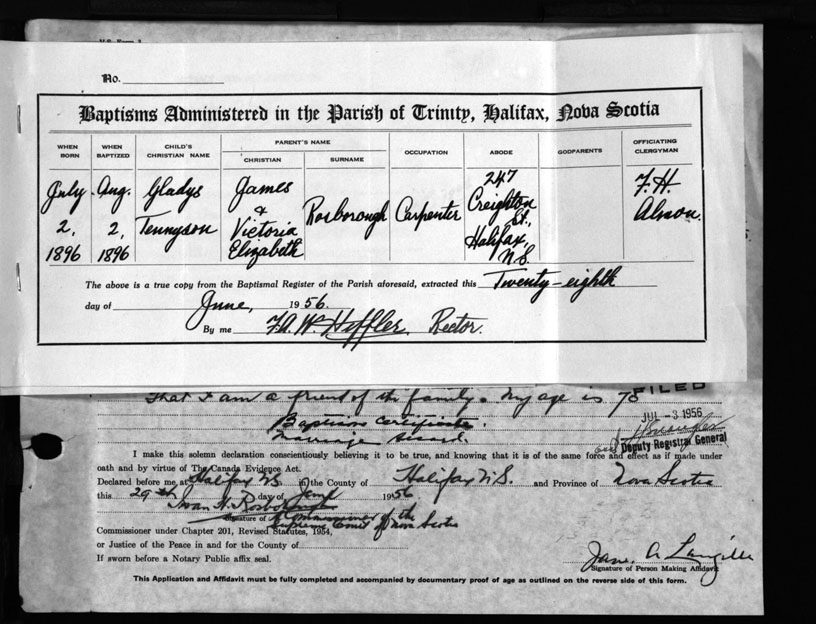 No.
Baptisms Administered in the Parish of Trinity, Halifax, Nova Scotia
WHEN BORN
WHEN BAPTIZED
CHILD'S CHRISTIAN NAME
PARENT'S NAME
CHRISTIAN
SURNAME
OCCUPATION
ABODE
GODPARENTS
OFFICIATING CLERGYMAN
July 2, 1896
Aug. 2, 1896
Gladys Tennyson
James & Victoria Elizabeth
Rosborough
Carpenter
247 Creighton St., Halifax, N.S.
F. H. Almon.
The above is a true copy from the Baptismal Register of the Parish aforesaid, extracted this Twenty-eighth
day of June, 1956.
By me F.A.W. Hiffler Rector.
That I am a friend of the family. My age is 78
FILED
JUL -3 1956
Deputy Registrar General
Baptism Certificate.
Marriage record.
I make this solemn declaration conscientiously believing it to be true, and knowing that it is of the same force and effect as if made under
oath and by virtue of The Canada Evidence Act.
Declared before me at Halifax N.S. in the County of Halifax N.S. and Province of Nova Scotia
this 29th day of June 1956
Ivan H. Rosborough
Signature of A Commissioner of the
Supreme Court of Nova Scotia
Commissioner under Chapter 201, Revised Statutes, 1954,
or Justice of the Peace in and for the County of
If sworn before a Notary Public affix seal.
Jane A Langille
Signature of Person Making Affidavit
This Application and Affidavit must be fully completed and accompanied by documentary proof of age as outlined on the reverse side of this form.